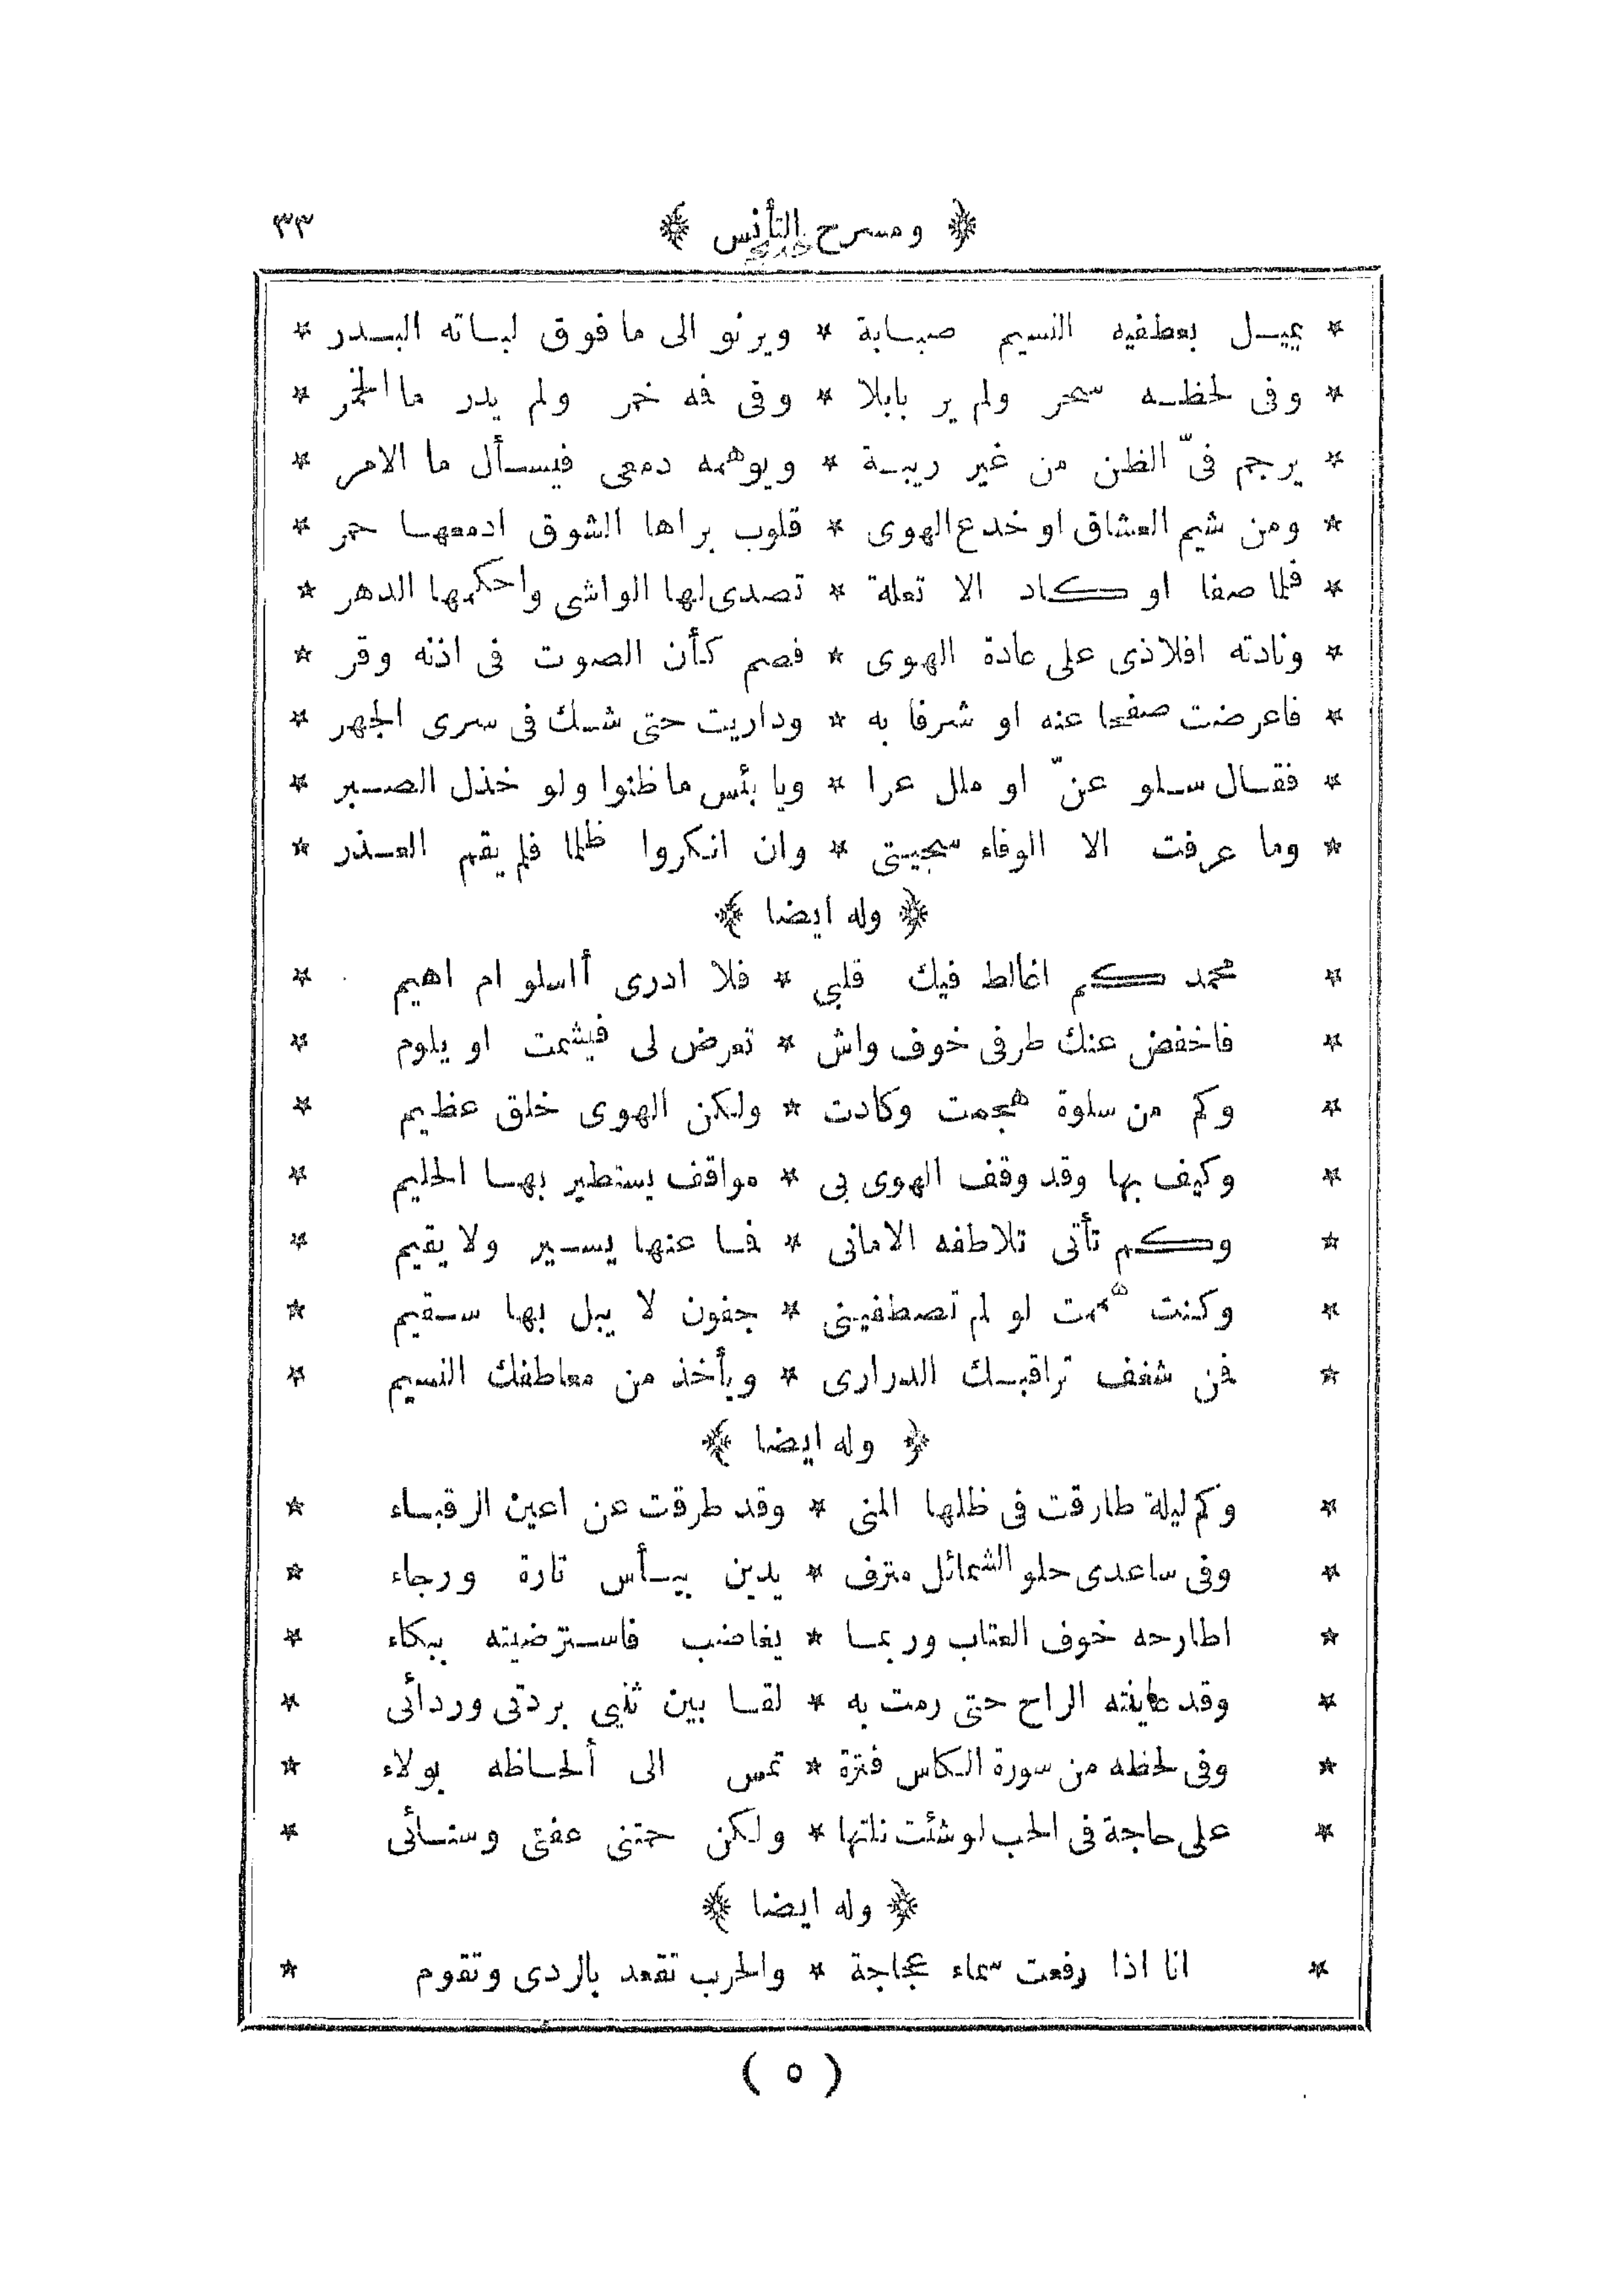 ﴿ ومسرح التأنس ﴾ ٣٣
* يميـل بعطفيه النسيم صبابة * ويرنو الى ما فوق لباته البدر *
* وفى لحظه سحر ولم ير بابلا * وفى فه خمر ولم يدر ما الخمر *
* يرجم فىّ الظن من غير ريبة * ويوهمه دمعى فيسأل ما الامر *
* ومن شيم العشاق او خدع الهوى * قلوب براها الشوق ادمعها حمر *
* فلما صفا او كاد الا تعلة * تصدى لها الواشى واحكمها الدهر *
* ونادته افلاذى على عادة الهوى * فصم كأن الصوت فى اذنه وقر *
* فاعرضت صفحا عنه او شرفا به * وداريت حتى شك فى سرى الجهر *
* فقال سلو عنّ او ملل عرا * ويا بئس ما ظنوا ولو خذل الصبر *
* وما عرفت الا الوفاء سجيتى * وان انكروا ظلما فلم يقم العذر *
﴿ وله ايضا ﴾
* محمد كم اغالط فيك قلبى * فلا ادرى أاسلو ام اهيم *
* فاخفض عنك طرفى خوف واش * تعرض لى فيشمت او يلوم *
* وكم من سلوة هجمت وكادت * ولكن الهوى خلق عظيم *
* وكيف بها وقد وقف الهوى بى * مواقف يستطير بها الحليم *
* وكم تأتى تلاطفه الامانى * فما عنها يسير ولا يقيم *
* وكنت هممت لو لم تصطفينى * جفون لا يبل بها سقيم *
* فن شغف تراقبك الدرارى * ويأخذ من معاطفك النسيم *
﴿ وله ايضا ﴾
* وكم ليلة طارقت فى ظلها المنى * وقد طرقت عن اعين الرقباء *
* وفى ساعدى حلو الشمائل مترف * يدين بيأس تارة ورجاء *
* اطارحه خوف العتاب وربما * يغاضب فاسترضيته ببكاء *
* وقد عاينته الراح حتى رمت به * لقا بين ثنيي بردتى وردائى *
* وفى لحظه من سورة الكاس فترة * تمس الى ألحاظه بولاء *
* على حاجة فى الحب لو شئت نلتها * ولكن حمتنى عفتى وسنائى *
﴿ وله ايضا ﴾
* انا اذا رفعت سماء عجاجة * والحرب تقعد بالردى وتقوم *
( ٥ )